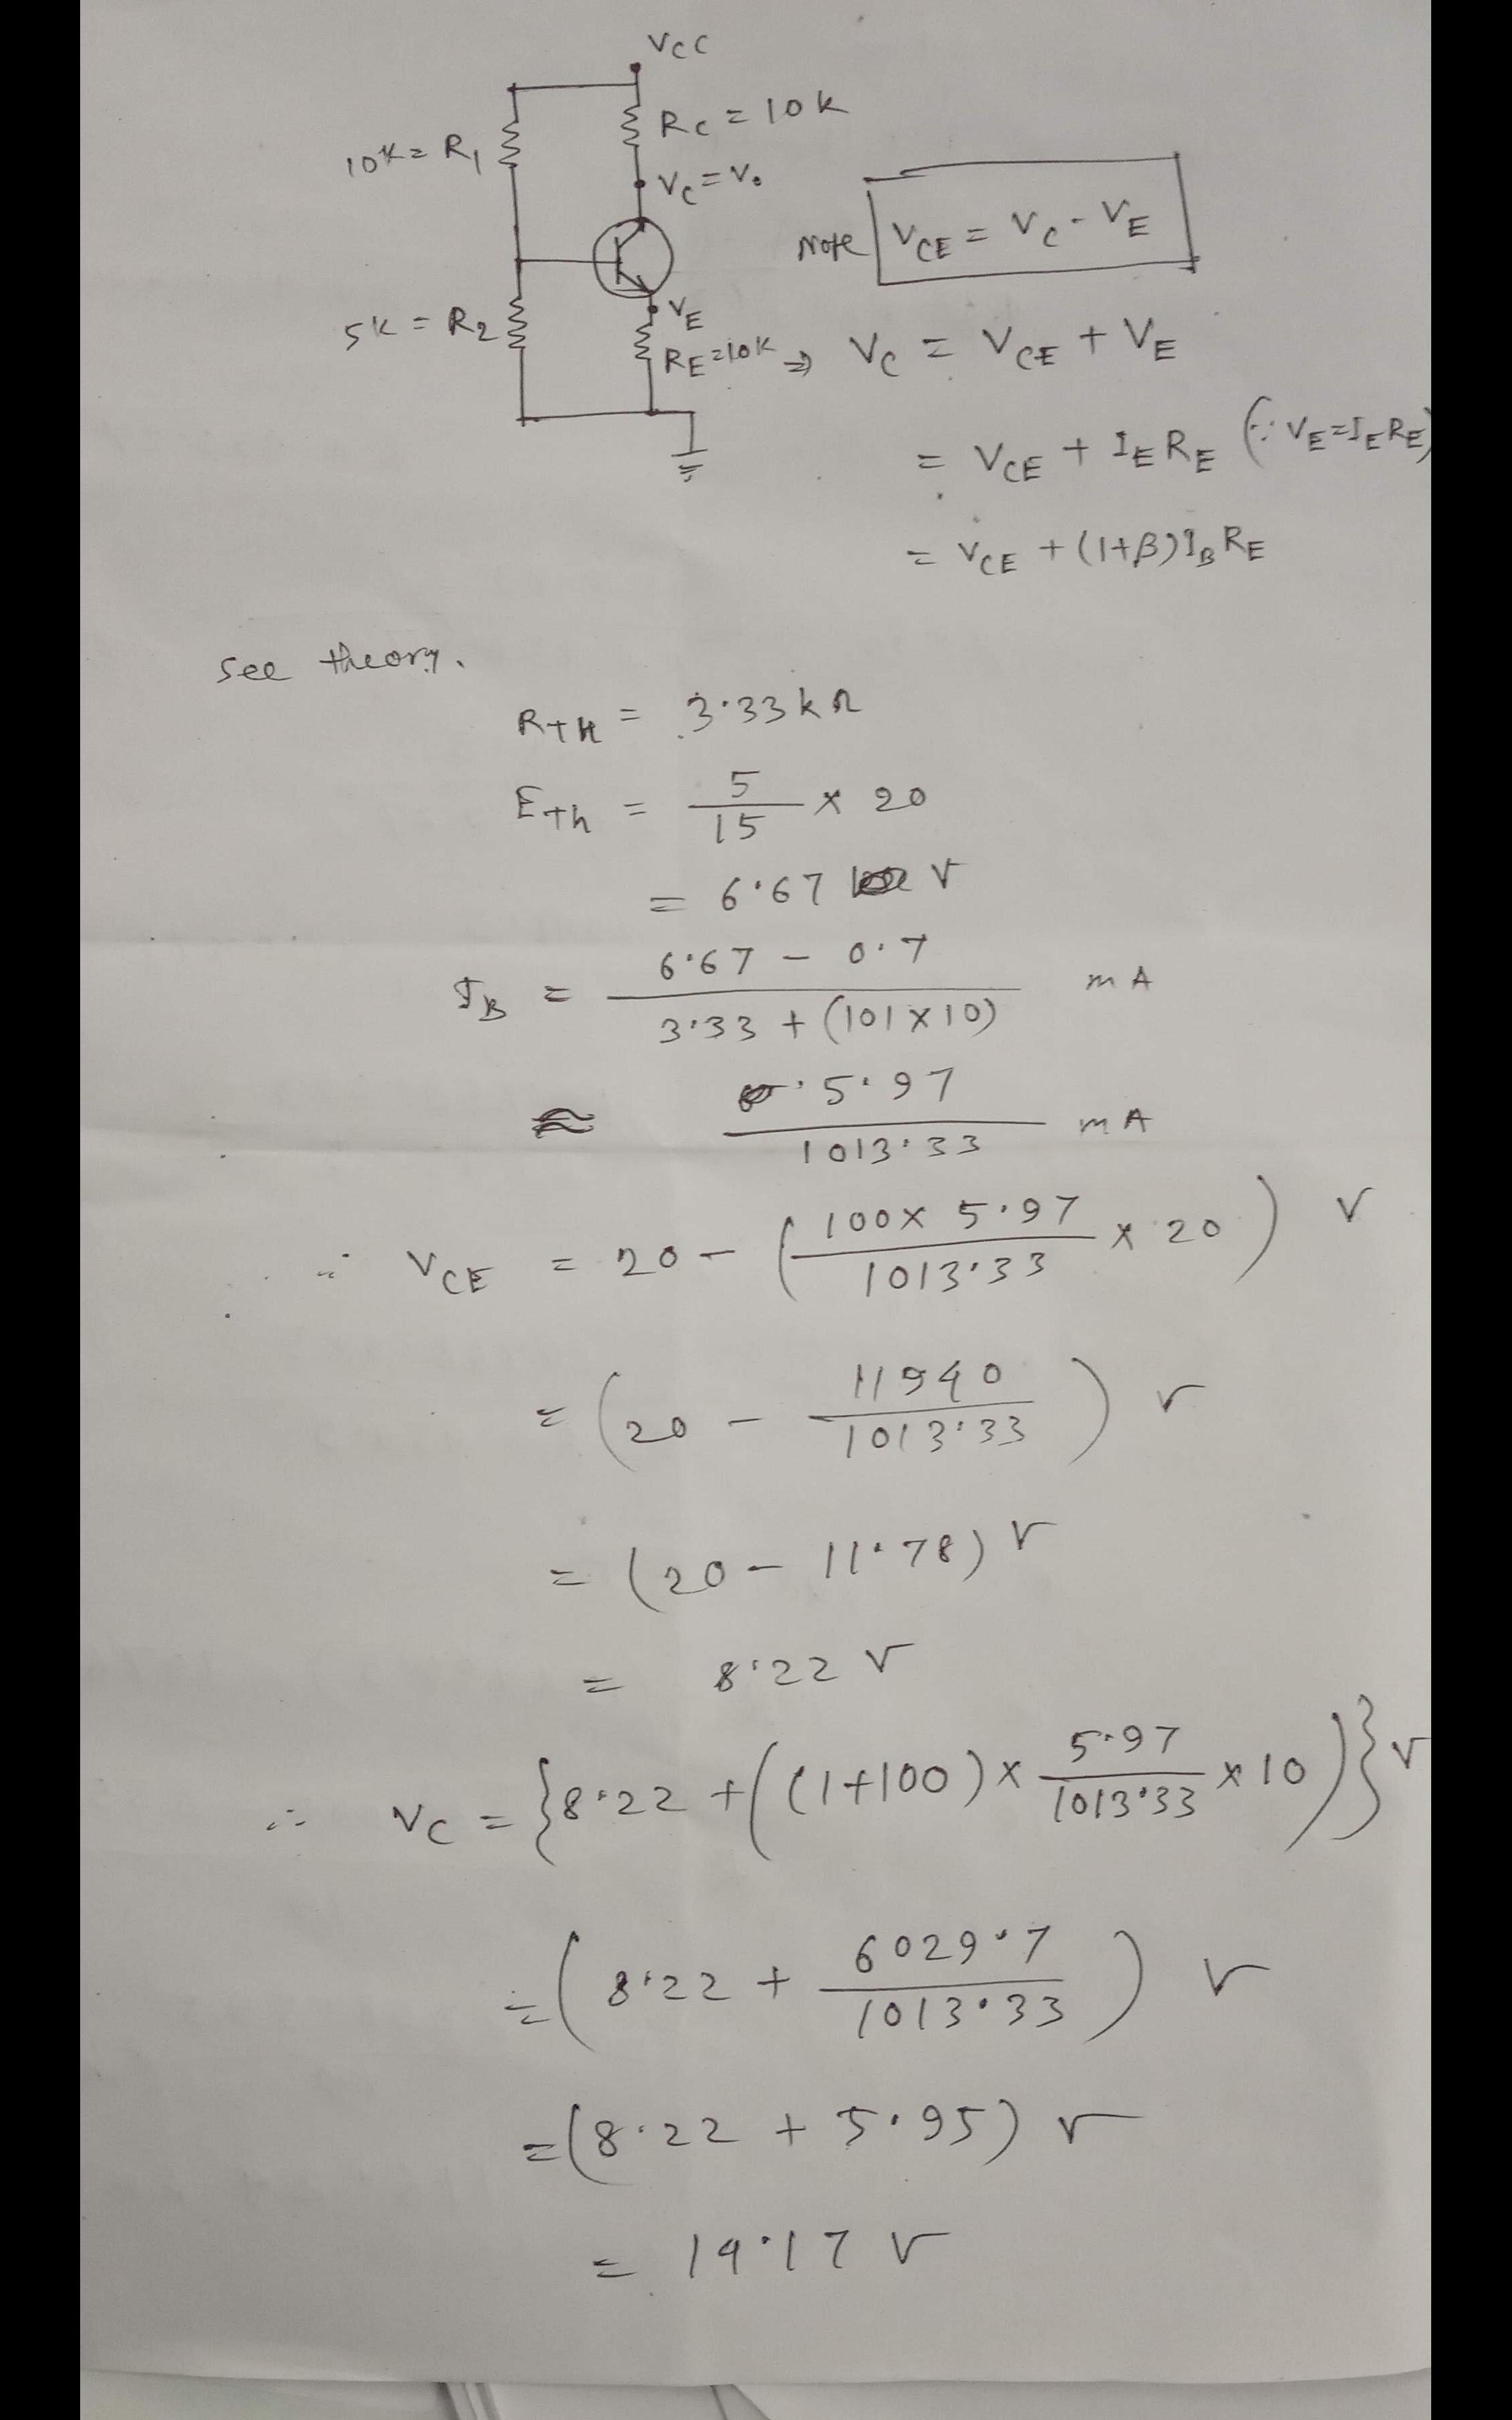 VCC
RC = 10K
10K = R1
VC = Vo
Note VCE = VC - VE
5K = R2
VE
RE = 10K
⇒ VC = VCE + VE
= VCE + IE RE (∵ VE = IE RE)
= VCE + (1+β) IB RE
see theory.
RTH = 3.33 k Ω
Eth = 5/15 × 20
= 6.67 V
IB = (6.67 - 0.7)/(3.33 + (101 × 10)) mA
≈ 5.97/1013.33 mA
∴ VCE = 20 - (100 × 5.97/1013.33 × 20) V
= (20 - 11940/1013.33) V
= (20 - 11.78) V
= 8.22 V
∴ VC = {8.22 + ((1+100) × 5.97/1013.33 × 10)} V
= (8.22 + 6029.7/1013.33) V
= (8.22 + 5.95) V
= 14.17 V